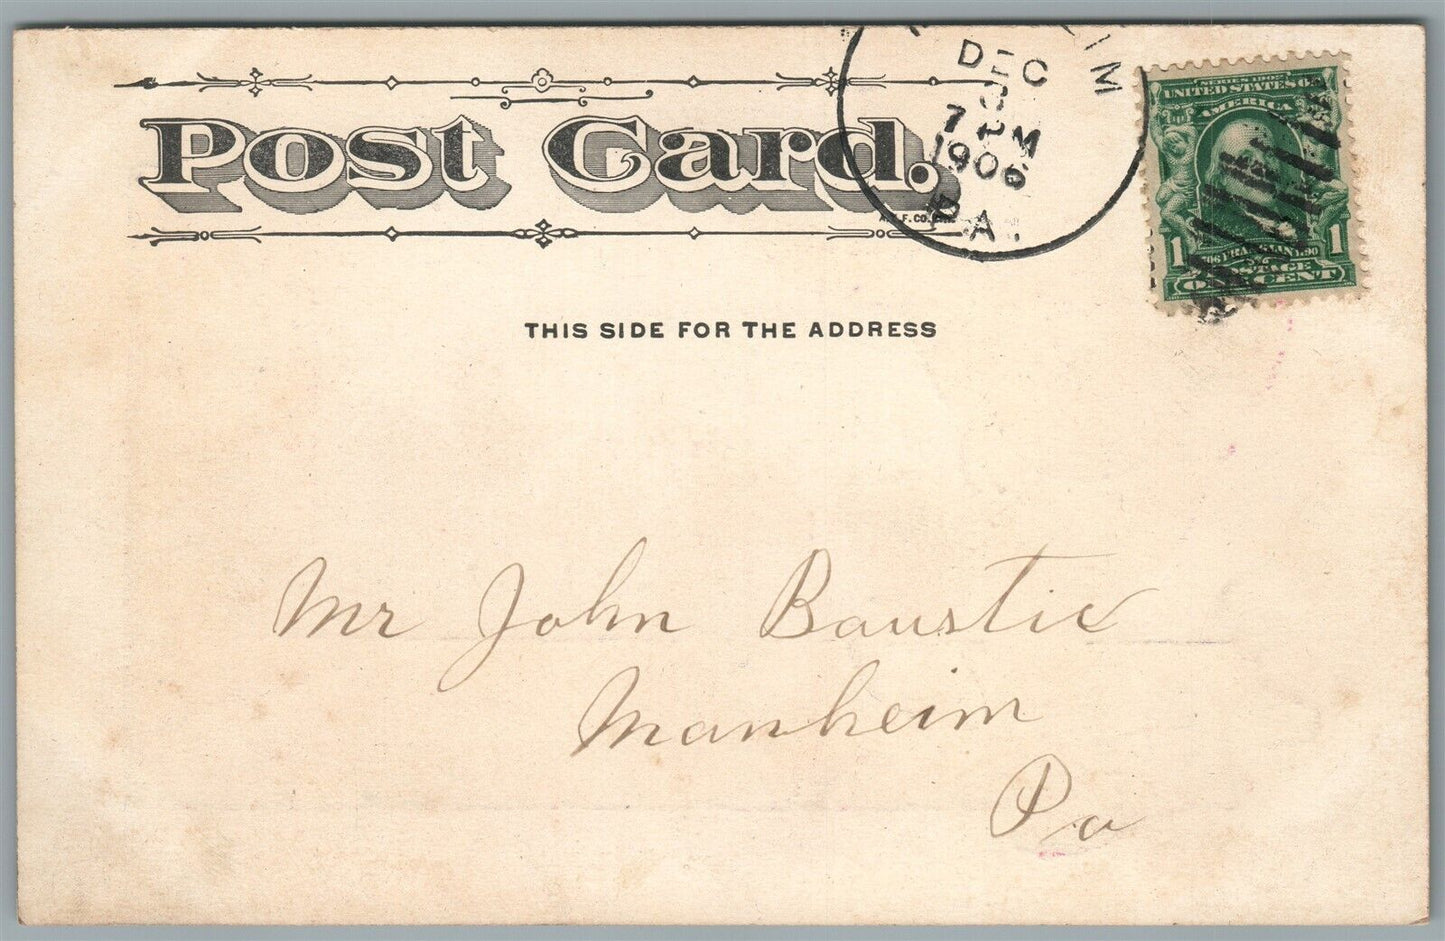 Post Card.
DEC
7 PM
1906
PA.
SERIES 1902
UNITED STATES OF
AMERICA
1 1
FRANKLIN
ONE CENT
THIS SIDE FOR THE ADDRESS
Mr John Baustic
Manheim
Pa